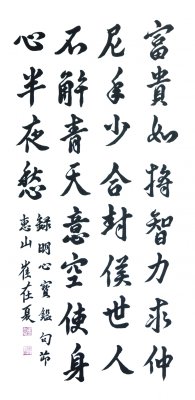 富貴如將智力求仲
尼年少合封侯世人
不解青天意空使身
心半夜愁
錄明心寶鑑句節
惠山 崔在夏